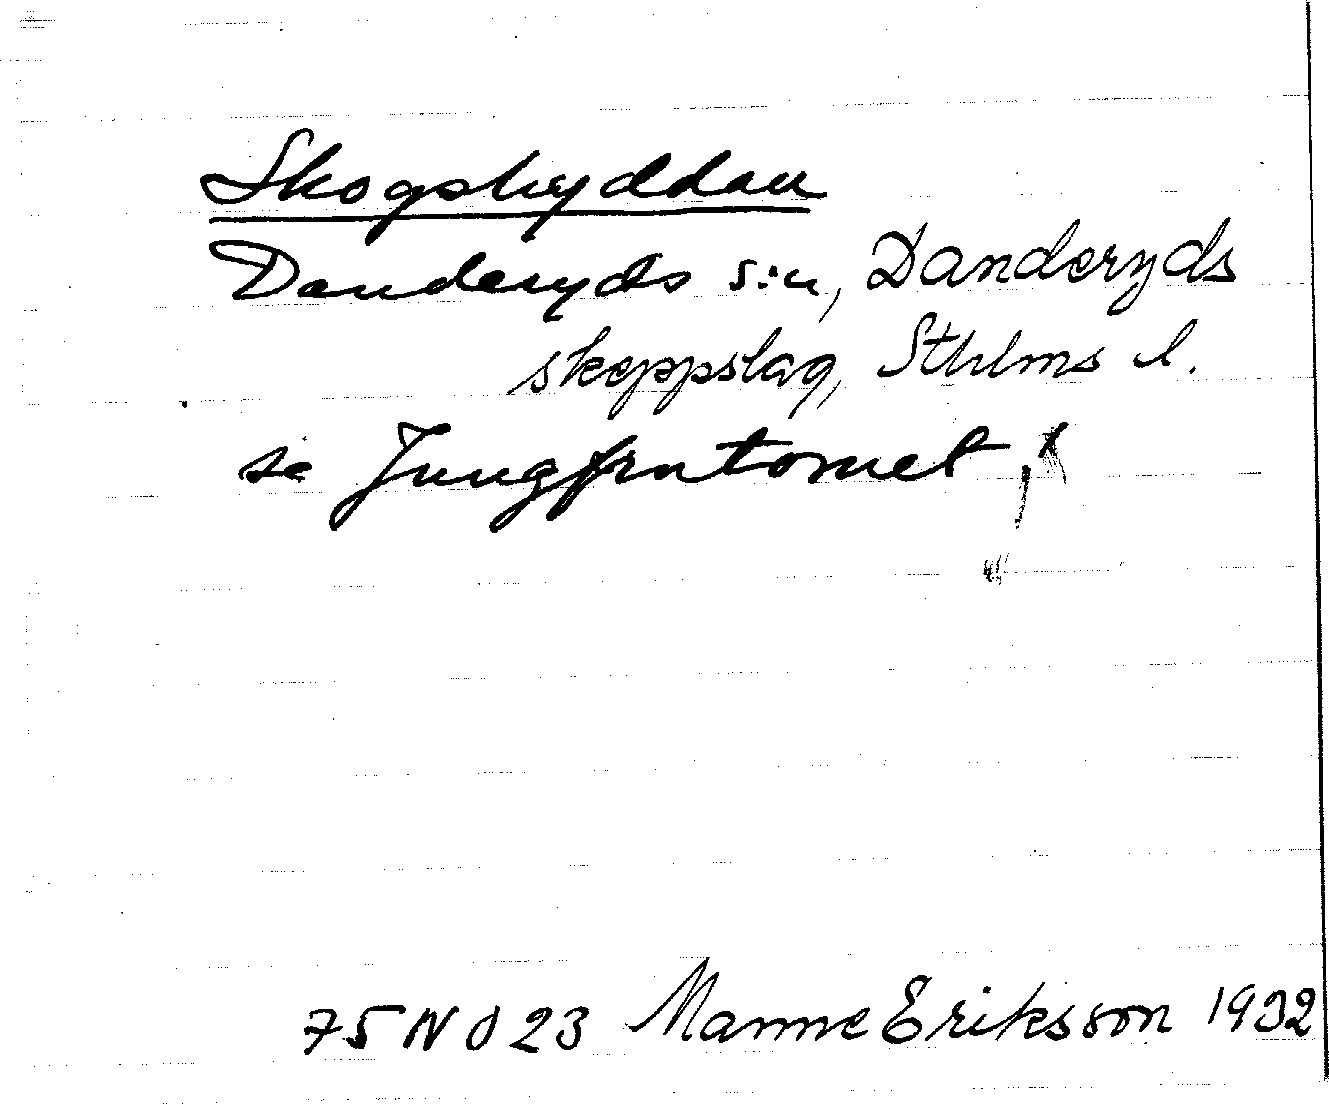 Skogshyddan
Danderyds s:n, Danderyds
skeppslag, Sthlms l.
se Jungfrutornet,
75 NO 23 Manne Eriksson 1932